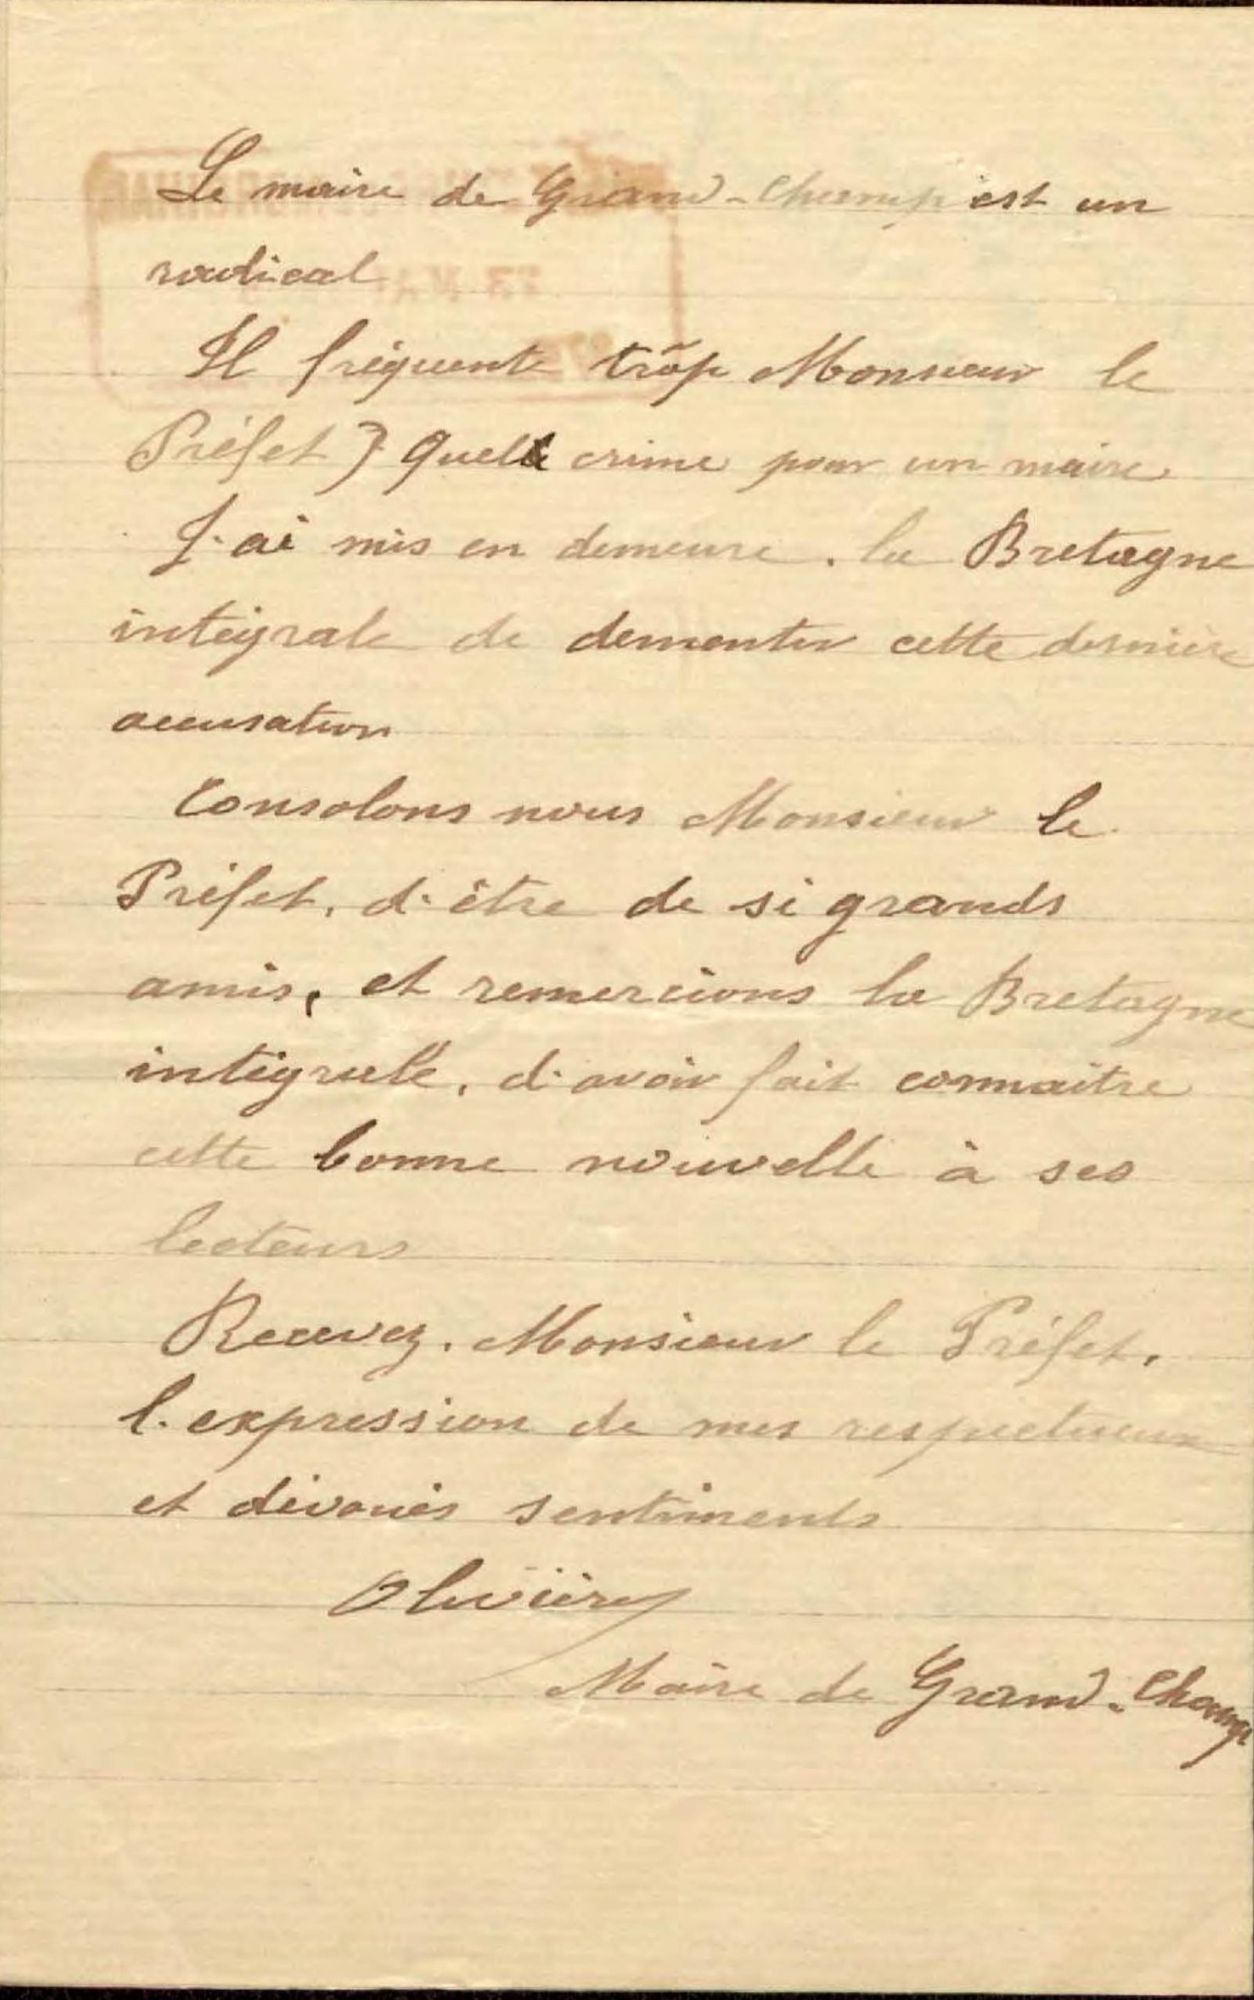 Le maire de Grand-Champ est un
radical
Il fréquente trop Monsieur le
Préfet } Quelle crime pour un maire
J'ai mis en demeure, la Bretagne
intégrale de dementir cette dernière
accusation
Consolons nous Monsieur le
Préfet, d'être de si grands
amis, et remercions la Bretagne
intégrale, d'avoir fait connaître
cette bonne nouvelle à ses
lecteurs
Recevez, Monsieur le Préfet,
l'expression de mes respectueux
et dévoués sentiments
Oliviéro
Maire de Grand-Champ